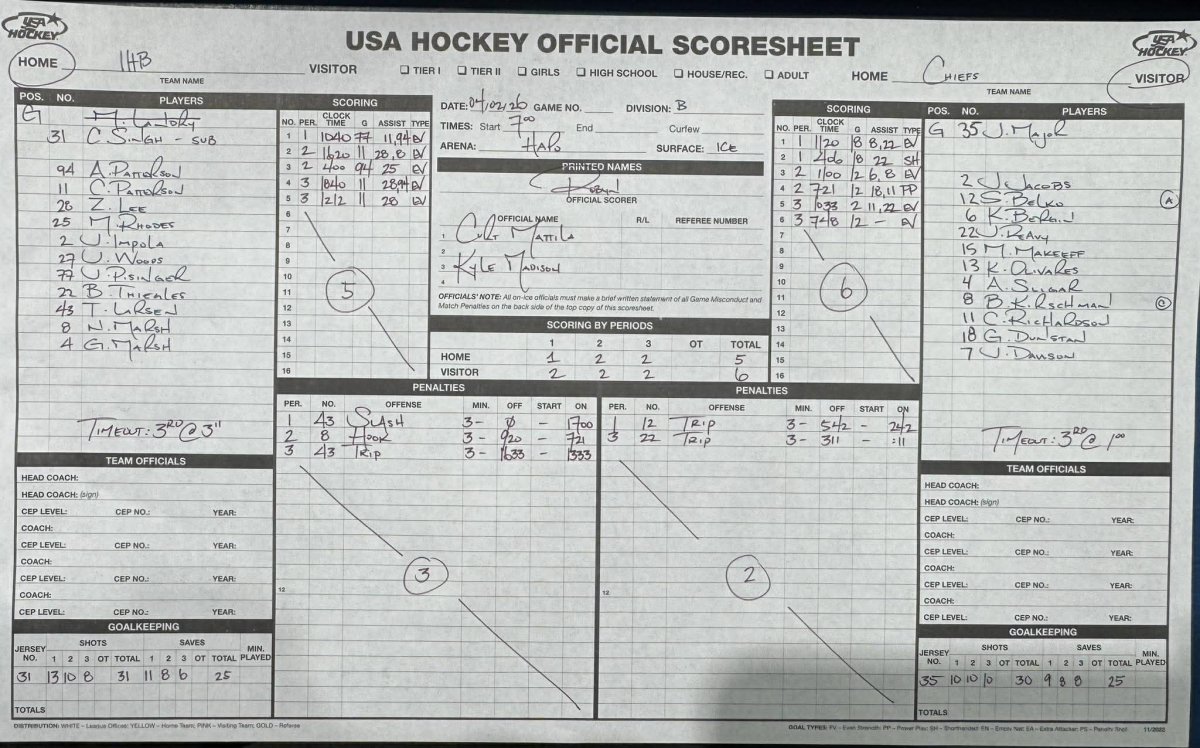 USA HOCKEY
USA HOCKEY OFFICIAL SCORESHEET
USA HOCKEY
HOME IHB VISITOR
TEAM NAME
☐ TIER I ☐ TIER II ☐ GIRLS ☐ HIGH SCHOOL ☐ HOUSE/REC. ☐ ADULT
HOME CHIEFS VISITOR
TEAM NAME
POS. NO. PLAYERS
G M. LANDRY
31 C. SINGH SUB
94 A. PATTERSON
11 C. PATTERSON
28 Z. LEE
25 M. RHODES
2 J. IMPOLA
27 J. WOODS
77 J. PISINGER
22 B. THIEALES
43 T. LARSEN
8 N. MARSH
4 G. MARSH
TIMEOUT: 3RD @ 3"
SCORING
NO. PER. CLOCK TIME G ASSIST TYPE
1 1 1040 77 11,94 EV
2 2 1620 11 28,8 EV
3 2 400 94 25 EV
4 3 1840 11 28,94 EV
5 3 1212 11 28 EV
6
7
8
9
10
11
12
13
14
15
16
5
DATE: 04/02/26 GAME NO. DIVISION: B
TIMES: Start 7:00 End Curfew
ARENA: HAPO SURFACE: ICE
PRINTED NAMES
OFFICIAL SCORER
OFFICIAL NAME R/L REFEREE NUMBER
1 CURT MATTILA
2
3 KYLE MADISON
4
OFFICIALS' NOTE: All on-ice officials must make a brief written statement of all Game Misconduct and
Match Penalties on the back side of the top copy of this scoresheet.
SCORING BY PERIODS
1 2 3 OT TOTAL
HOME 1 2 2 5
VISITOR 2 2 2 6
SCORING
NO. PER. CLOCK TIME G ASSIST TYPE
1 1 1120 18 8,22 EV
2 1 406 18 22 SH
3 2 1100 12 6,8 EV
4 2 721 12 18,11 PP
5 3 1033 2 11,22 EV
6 3 748 12 - EV
7
8
9
10
11
12
13
14
15
16
6
POS. NO. PLAYERS
G 35 J. MAJOR
2 J. JACOBS
12 S. BELKO A
6 K. BERGIN
22 J. REAVY
15 M. MAKEEFF
13 K. OLIVARES
4 A. SLIGAR
8 B. KIRSCHMAN C
11 C. RICHARDSON
18 G. DUNSTAN
7 J. DAVISON
TIMEOUT: 3RD @ 1:00
PENALTIES
PER. NO. OFFENSE MIN. OFF START ON
1 43 SLASH 3- 0 - 1700
2 8 HOOK 3- 920 - 721
3 43 TRIP 3- 1633 - 1333
3
12
PENALTIES
PER. NO. OFFENSE MIN. OFF START ON
1 12 TRIP 3- 542 - 242
3 22 TRIP 3- 311 - :11
2
12
TEAM OFFICIALS
HEAD COACH:
HEAD COACH: (sign)
CEP LEVEL: CEP NO.: YEAR:
COACH:
CEP LEVEL: CEP NO.: YEAR:
COACH:
CEP LEVEL: CEP NO.: YEAR:
COACH:
CEP LEVEL: CEP NO.: YEAR:
GOALKEEPING
JERSEY NO. SHOTS SAVES MIN. PLAYED
1 2 3 OT TOTAL 1 2 3 OT TOTAL
31 13 10 8 31 11 8 6 25
TOTALS
TEAM OFFICIALS
HEAD COACH:
HEAD COACH: (sign)
CEP LEVEL: CEP NO.: YEAR:
COACH:
CEP LEVEL: CEP NO.: YEAR:
COACH:
CEP LEVEL: CEP NO.: YEAR:
COACH:
CEP LEVEL: CEP NO.: YEAR:
GOALKEEPING
JERSEY NO. SHOTS SAVES MIN. PLAYED
1 2 3 OT TOTAL 1 2 3 OT TOTAL
35 10 10 10 30 9 8 8 25
TOTALS
DISTRIBUTION: WHITE – League Official; YELLOW – Home Team; PINK – Visiting Team; GOLD – Referee
GOAL TYPES: EV – Even Strength; PP – Power Play; SH – Shorthanded; EN – Empty Net; EA – Extra Attacker; PS – Penalty Shot 11/2022